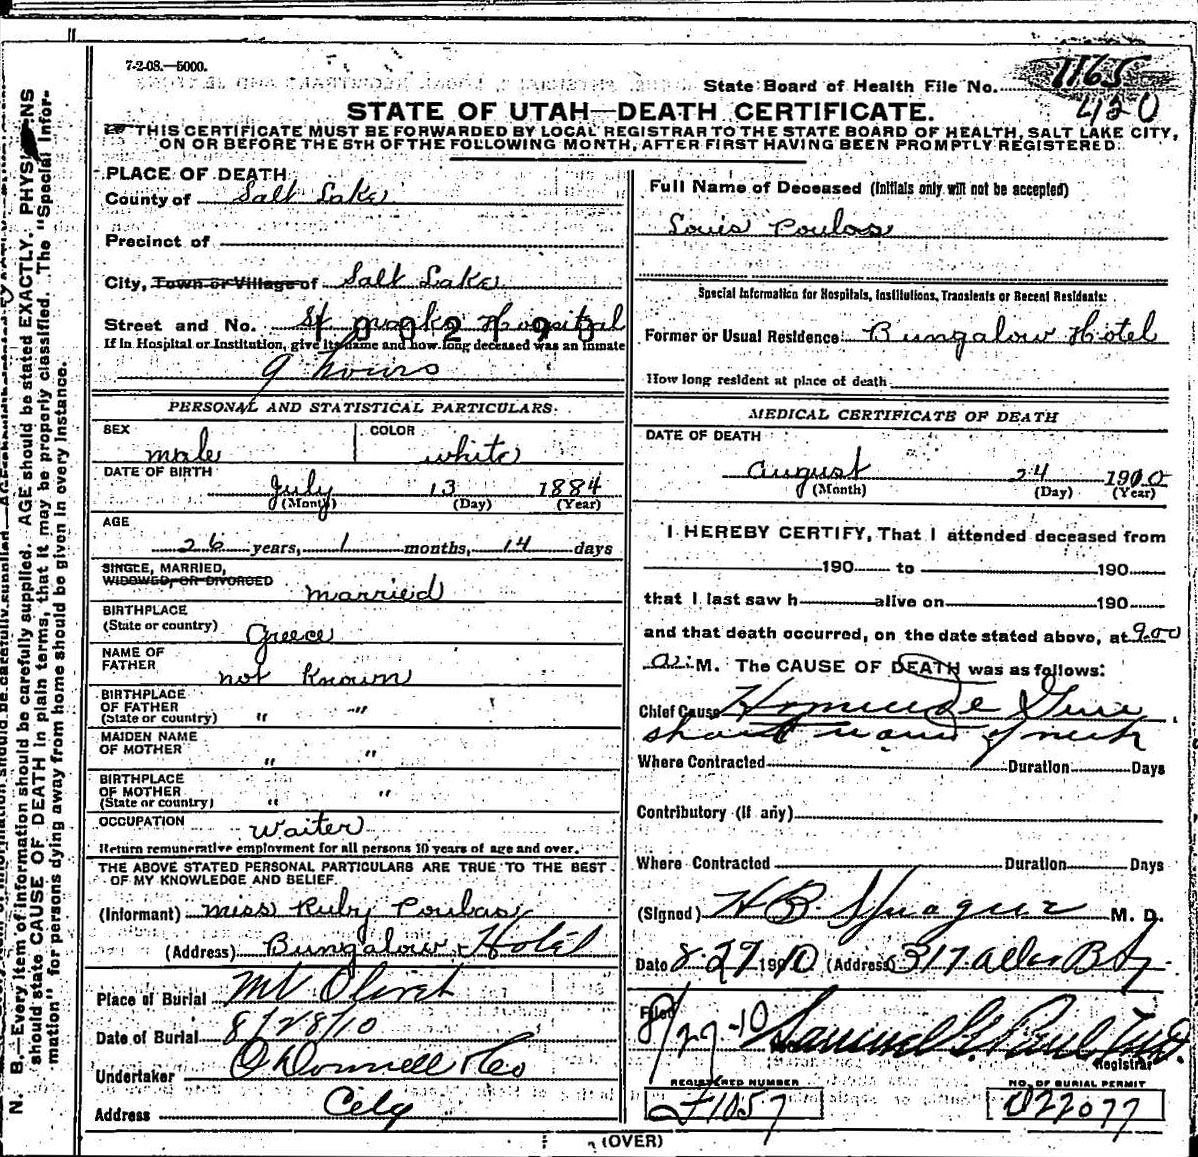 7-2-08.—5000.
State Board of Health File No. 1165
430
STATE OF UTAH—DEATH CERTIFICATE.
THIS CERTIFICATE MUST BE FORWARDED BY LOCAL REGISTRAR TO THE STATE BOARD OF HEALTH, SALT LAKE CITY,
ON OR BEFORE THE 5TH OF THE FOLLOWING MONTH, AFTER FIRST HAVING BEEN PROMPTLY REGISTERED.
PLACE OF DEATH
County of Salt Lake
Precinct of
City, Town or Village of Salt Lake
Street and No. St Marks Hospital
If in Hospital or Institution, give its name and how long deceased was an inmate
9 hours
PERSONAL AND STATISTICAL PARTICULARS.
SEX male COLOR white
DATE OF BIRTH
July 13 1884
(Month) (Day) (Year)
AGE
26 years, 1 months, 14 days
SINGLE, MARRIED,
WIDOWED, OR DIVORCED married
BIRTHPLACE
(State or country) Greece
NAME OF
FATHER not known
BIRTHPLACE
OF FATHER
(State or country) " "
MAIDEN NAME
OF MOTHER " "
BIRTHPLACE
OF MOTHER
(State or country) " "
OCCUPATION Waiter
Return remunerative employment for all persons 10 years of age and over.
THE ABOVE STATED PERSONAL PARTICULARS ARE TRUE TO THE BEST
OF MY KNOWLEDGE AND BELIEF.
(Informant) Miss Ruby Poulas
(Address) Bungalow Hotel
Place of Burial Mt Olivet
Date of Burial 8/28/10
Undertaker O'Donnell & Co
Address City
Full Name of Deceased (Initials only will not be accepted)
Louis Poulos
Special Information for Hospitals, Institutions, Transients or Recent Residents:
Former or Usual Residence Bungalow Hotel
How long resident at place of death
MEDICAL CERTIFICATE OF DEATH
DATE OF DEATH
August 24 1910
(Month) (Day) (Year)
I HEREBY CERTIFY, That I attended deceased from
190 to 190
that I last saw h alive on 190
and that death occurred, on the date stated above, at 9:00
a. M. The CAUSE OF DEATH was as follows:
Chief Cause Homicide Gun
shot wound of neck
Where Contracted Duration Days
Contributory (if any)
Where Contracted Duration Days
(Signed) H B Sprague M. D.
Date 8-27 1910 (Address) 317
Filed 8/27-10 Samuel G. Paul M.D.
Registrar
REGISTERED NUMBER
1057
NO. OF BURIAL PERMIT
D22077
(OVER)
N. B.—Every item of information should be carefully supplied. AGE should be stated EXACTLY. PHYSICIANS
should state CAUSE OF DEATH in plain terms, that it may be properly classified. The "Special Infor-
mation" for persons dying away from home should be given in every instance.